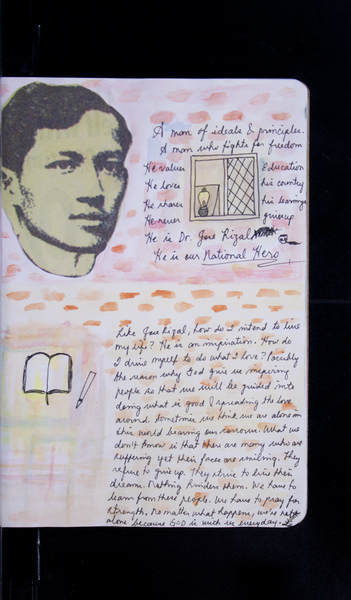 A man of ideals & principles.
A man who fights for freedom
He values Education
He loves his country
He shares his learnings
He never giveup
He is Dr. Jose Rizal
He is our National Hero
Like Jose Rizal, how do I intend to live
my life? He is an inspiration. How do
I drive myself to do what I love? Possibly
the reason why God give us inspiring
people so that we will be guided into
doing what is good & spreading the love
around. Sometimes us think we are alone in
this world bearing our sorrow. What we
don't know is that there are many who are
suffering yet their faces are smiling. They
refuse to give up. They strive to live their
dreams. Nothing hinders them. We have to
learn from these people. We have to pray for
strength. No matter what happens, we're not
alone because GOD is with us everyday.